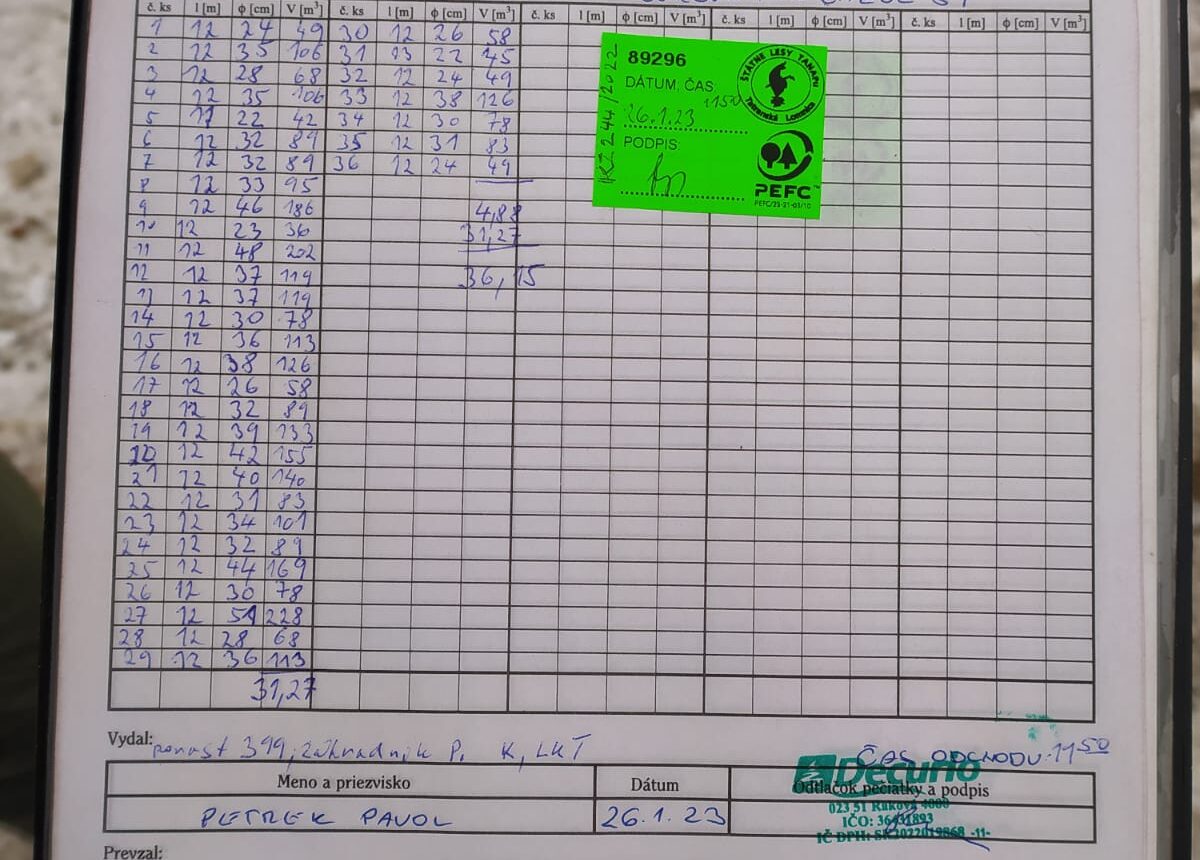 č. ks l [m] ϕ [cm] V [m³] č. ks l [m] ϕ [cm] V [m³] č. ks l [m] ϕ [cm] V [m³] č. ks l [m] ϕ [cm] V [m³] č. ks l [m] ϕ [cm] V [m³]
1 12 24 49 30 12 26 58
2 12 35 106 31 13 22 45
3 12 28 68 32 12 24 49
4 12 35 106 33 12 38 126
5 11 22 42 34 12 30 78
6 12 32 89 35 12 31 83
7 12 32 89 36 12 24 49
8 12 33 95
9 12 46 186 4,88
10 12 23 36 31,27
11 12 48 202
12 12 37 119 36,15
13 12 37 119
14 12 30 78
15 12 36 113
16 12 38 126
17 12 26 58
18 12 32 89
19 12 39 133
20 12 42 155
21 12 40 140
22 12 31 83
23 12 34 101
24 12 32 89
25 12 44 169
26 12 30 78
27 12 51 228
28 12 28 68
29 12 36 113
31,27
KZ 244/2022
89296
DÁTUM, ČAS
1150
26.1.23
PODPIS:
ŠTÁTNE LESY TANAPU
Tatranská Lomnica
PEFC™
PEFC/23-21-03/10
Vydal: porast 399, Záhradník P. K, LKT
ČAS ODCHODU 11⁵⁰
Meno a priezvisko Dátum Odtlačok pečiatky a podpis
Decurio
023 51 Raková 4000
PETREK PAVOL 26.1.23
IČO: 36431893
IČ DPH: SK2022019868 -11-
Prevzal: